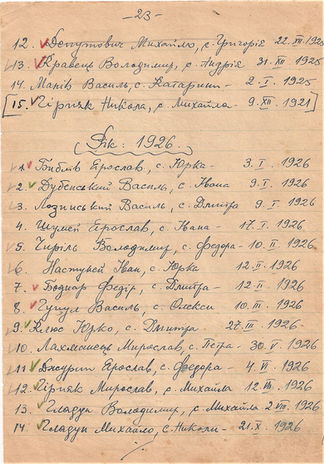 -23-
12. Депутович Михайло, с. Григорія 22. XII. 1925
13. Кравець Володимир, с. Андрія 31. XII 1925
14. Марів Василь, с. Катарини - 2. I. 1925
[15. Піріжк Никола, с. Михайла - 9. XII. 1921]
Рік: 1926.
1. Библів Ярослав, с. Юрка - 3. I. 1926
2. Дудинський Василь, с. Івана 9. I. 1926
3. Лозинський Василь, с. Дмитра 9. I. 1926
4. Шумей Ярослав, с. Івана - 17. I. 1926
5. Чиріль Володимир, с. Федора - 10. II. 1926
6. Настубей Іван, с. Юрка 12. II. 1926
7. Боднар Федір, с. Дмитра - 12. II. 1926
8. Гулул Василь, с. Олекси 10. III. 1926
9. Клюс Юрко, с. Дмитра 27. III. 1926
10. Лахманець Мирослав, с. Петра - 30. V. 1926
11. Джурин Ярослав, с. Федора - 4. VI. 1926
12. Піріжк Мирослав, с. Михайла 12. VII. 1926
13. Гладун Володимир, с. Михайла 2. VIII. 1926
14. Гладун Михайло, с. Николи - 21. X. 1926